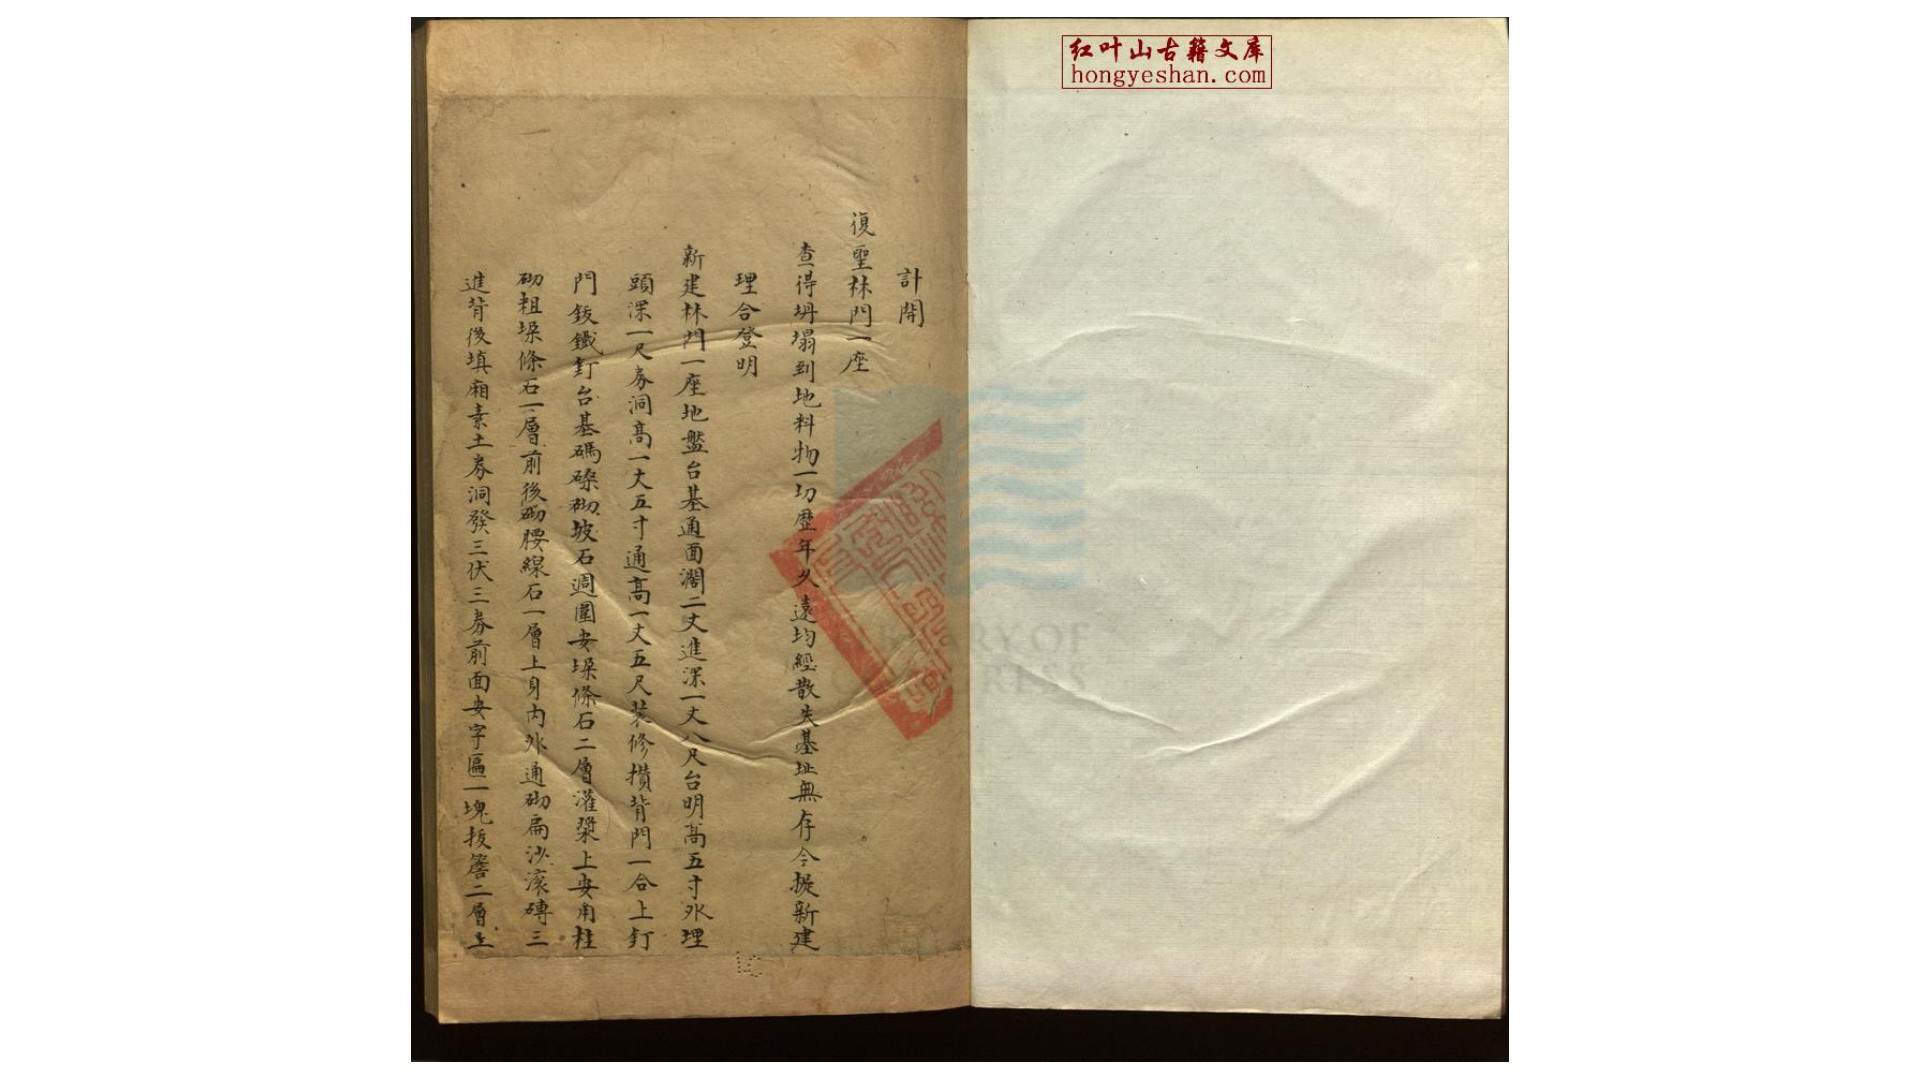 红叶山古籍文库
hongyeshan.com
計開
復聖林門一座
查得坍塌到地料物一切歷年久遠均經散失基址無存今擬新建
理合登明
新建林門一座地盤台基通面濶二丈進深一丈八尺台明高五寸外埋
頭深一尺券洞高一丈五寸通高一丈五尺裝修攢背門一合上釘
門鈸鐵釘台基碼磉砌坡石週圍安埰條石二層灌漿上安角柱
砌粗埰條石一層前後砌腰線石一層上身內外通砌扁沙滾磚三
進背後填廂素土券洞發三伏三券前面安字匾一塊拔簷二層上
LC